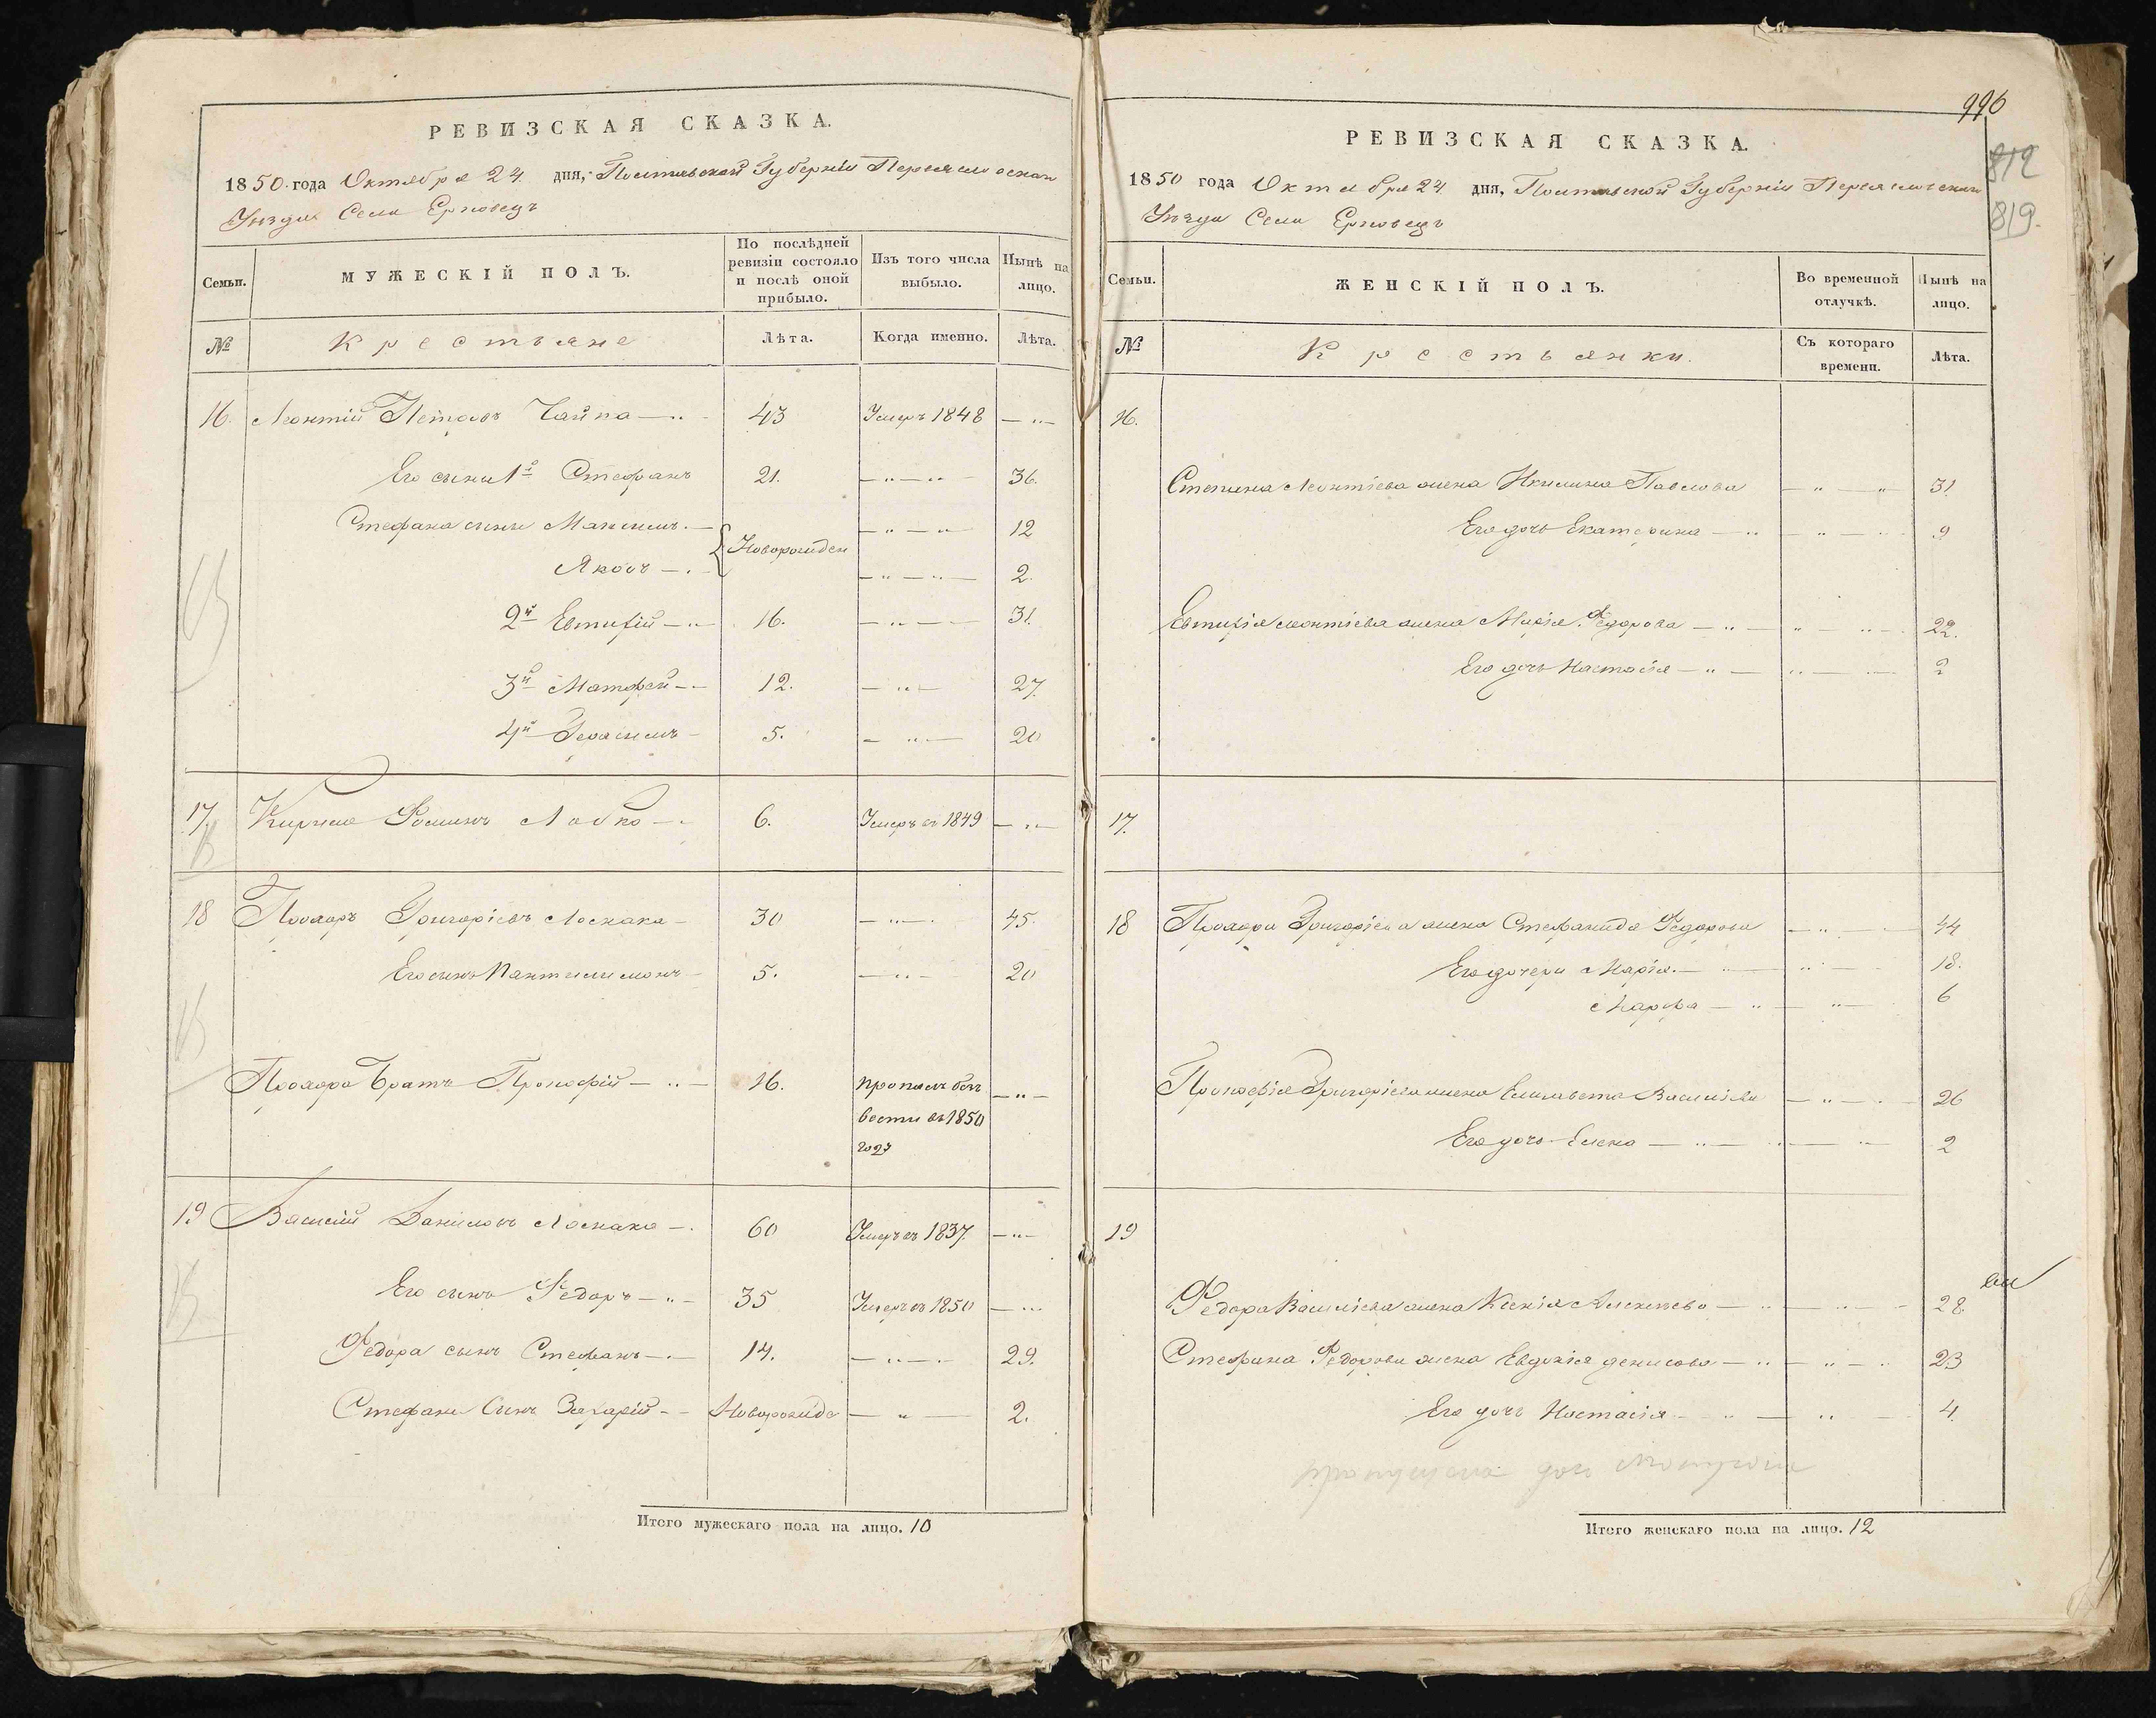 РЕВИЗСКАЯ СКАЗКА.
1850 года Октября 24 дня, Полтавской Губерніи Переяславскаго
Уѣзда Села Ерковецъ
Семьи.
МУЖЕСКІЙ ПОЛЪ.
По послѣдней ревизіи состояло и послѣ оной прибыло.
Изъ того числа выбыло.
Нынѣ на лицо.
№
Крестьяне
Лѣта.
Когда именно.
Лѣта.
16. Леонтій Петровъ Чайка 43 Умеръ 1848
Его сыны 1й Стефанъ 21. 36.
Стефана сыны Максимъ 12
Новорожден
Яковъ 2.
2й Евтихій 16. 31.
3й Матфей 12. 27.
4й Герасимъ 5. 20
17. Кирило Фоминъ Лобко 6. Умеръ въ 1849
18 Прохоръ Григоріевъ Лоскака 30 45.
Его сынъ Пантелимонъ 5. 20
Прохора Братъ Прокофій 16. пропалъ безъ
вести въ 1850
году
19 Василій Даниловъ Лоскака 60 Умеръ въ 1837.
Его сынъ Федоръ 35 Умеръ въ 1850
Федора сынъ Стефанъ 14. 29.
Стефана Сынъ Захарій Новорожде 2.
Итого мужескаго пола на лицо. 10
996
812
819.
РЕВИЗСКАЯ СКАЗКА.
1850 года Октября 24 дня, Полтавской Губерніи Переяславскаго
Уѣзда Села Ерковецъ
Семьи.
ЖЕНСКІЙ ПОЛЪ.
Во временной отлучкѣ.
Нынѣ на лицо.
№
Крестьянки.
Съ котораго времени.
Лѣта.
16.
Степана Леонтіева жена Акилина Павлова 31.
Его дочь Екатерина 9
Евтихія Леонтіева жена Марія Федорова 22.
Его дочь Настасія 2
17.
18 Прохора Григоріева жена Стефанида Федорова 44
Его дочери Марія 18.
Марфа 6
Прокофія Григоріева жена Елисавета Василіева 26
Его дочь Елена 2
19
Федора Василіева жена Ксенія Алексѣева 28
Стефана Федорова жена Евдокія Денисова 23
Его дочь Настасія 4.
пропущена дочь
Итого женскаго пола на лицо. 12